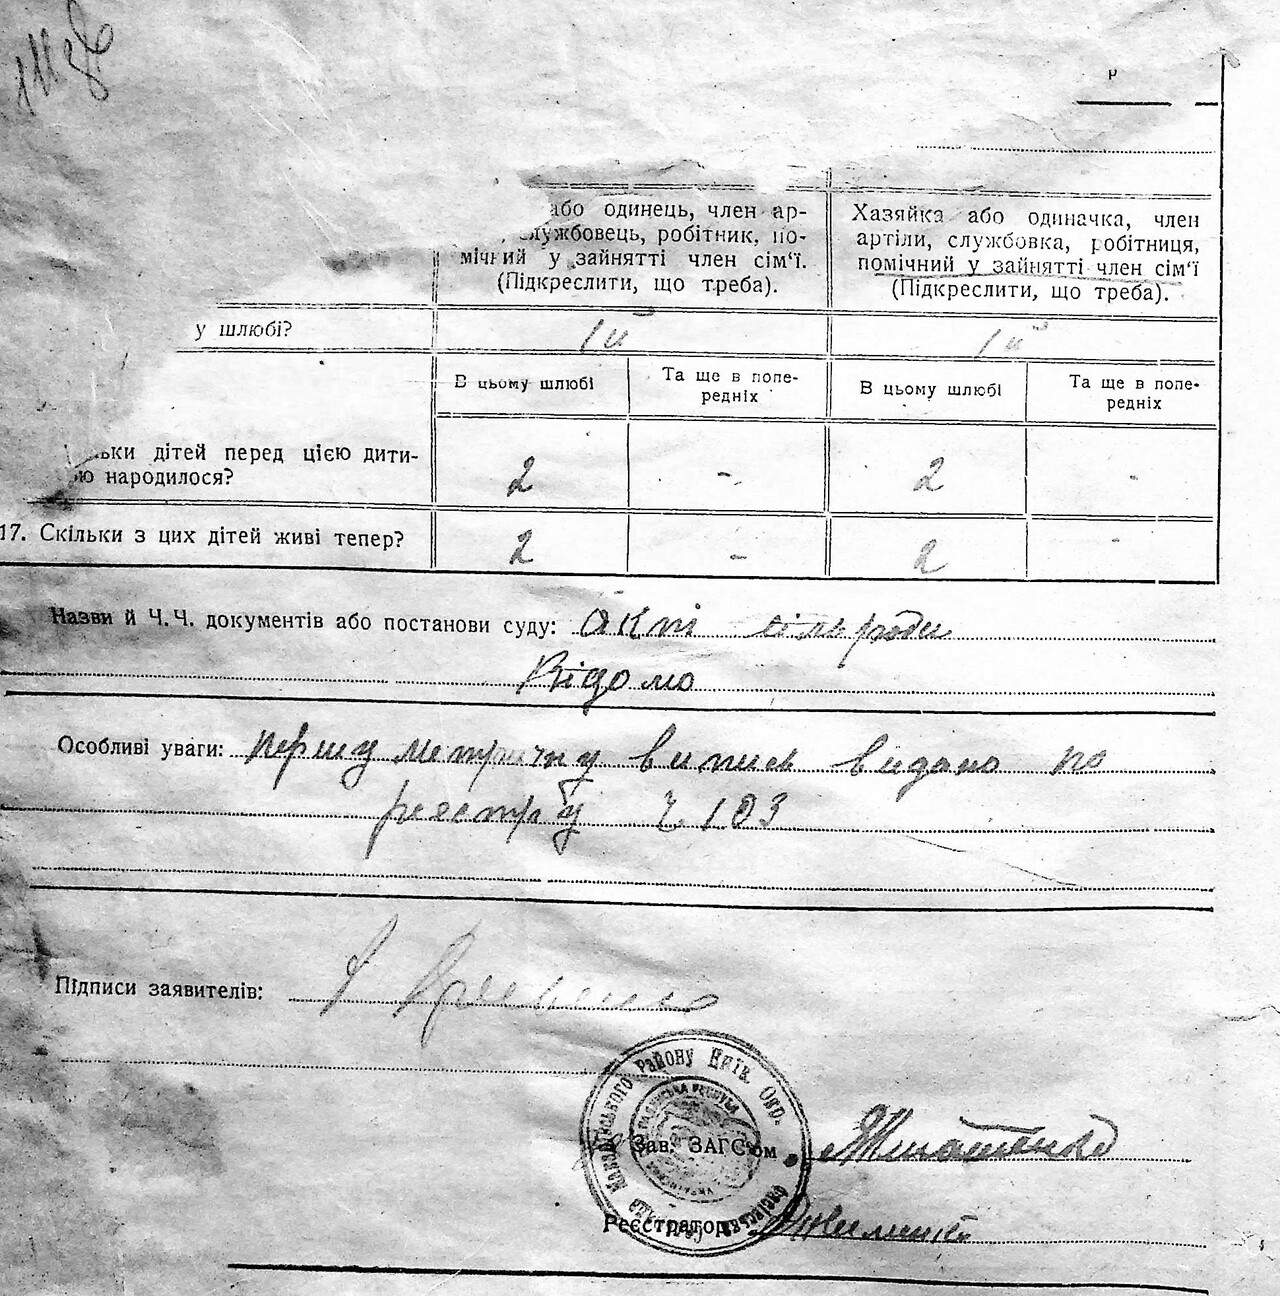 або одинець, член ар-
службовець, робітник, по-
мічний у зайнятті член сім'ї.
(Підкреслити, що треба).
Хазяйка або одиначка, член
артіли, службовка, робітниця,
помічний у зайнятті член сім'ї
(Підкреслити, що треба).
у шлюбі?
1й
1й
В цьому шлюбі
Та ще в попе-
редніх
В цьому шлюбі
Та ще в попе-
редніх
ьки дітей перед цією дити-
ю народилося?
2
-
2
-
17. Скільки з цих дітей живі тепер?
2
-
2
-
Назви й Ч.Ч. документів або постанови суду: акт сільради
Відомо
Особливі уваги: першу метричну випис видано по
реєстру ч 103
Підписи заявителів:
Району Київ. Окр.
Зав. ЗАГС'ом
Реєстратор